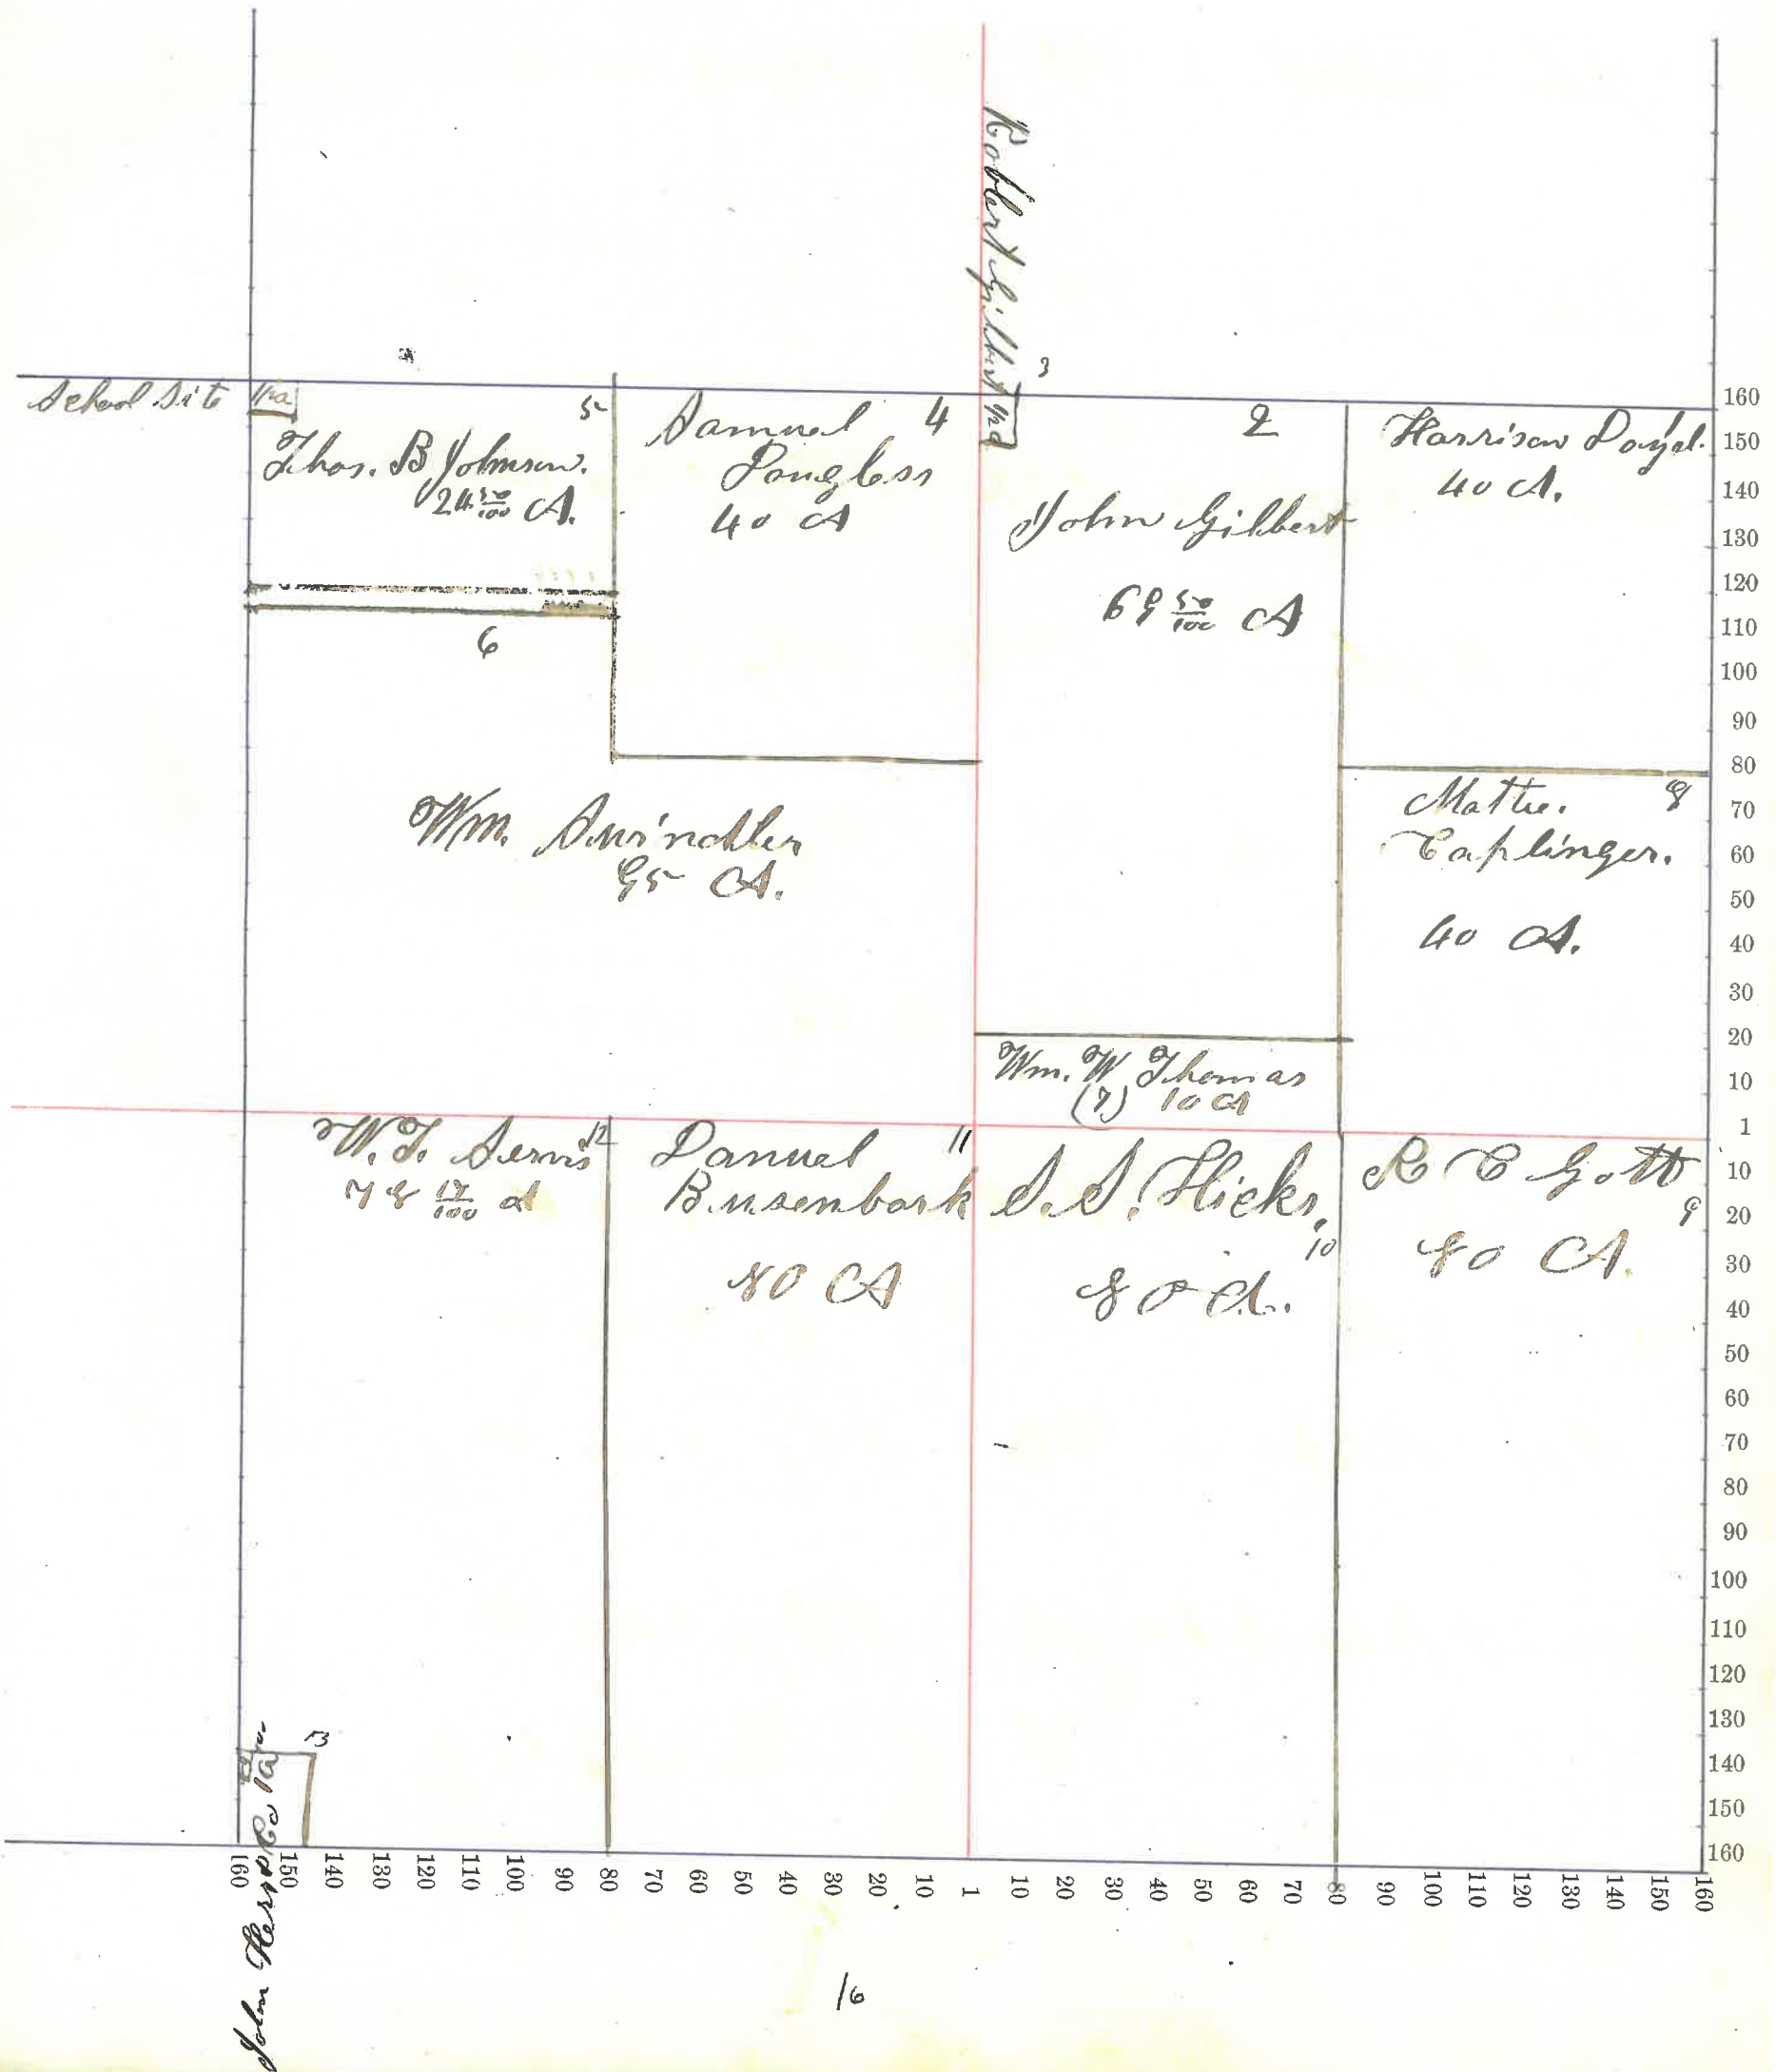 Robert Gilbert
3
School Site
5
Thos. B Johnson.
24 50/100 A.
Samuel 4
Dougless
40 A
1/2 a
2
John Gilbert
69 50/100 A
1
Harrison Doyel.
40 A.
6
Wm. Swindler
95 A.
8
Caplinger.
40 A.
Wm. W Thomas
(7) 10 A
W. T. Servis 12
78 17/100 a
Danuel 11
Busenbark
80 A
S. S. Hicks,
10
80 A.
R C Gott
9
80 A.
13
1a
John
160
150
140
130
120
110
100
90
80
70
60
50
40
30
20
10
1
10
20
30
40
50
60
70
80
90
100
110
120
130
140
150
160
160 150 140 130 120 110 100 90 80 70 60 50 40 30 20 10 1 10 20 30 40 50 60 70 80 90 100 110 120 130 140 150 160
16